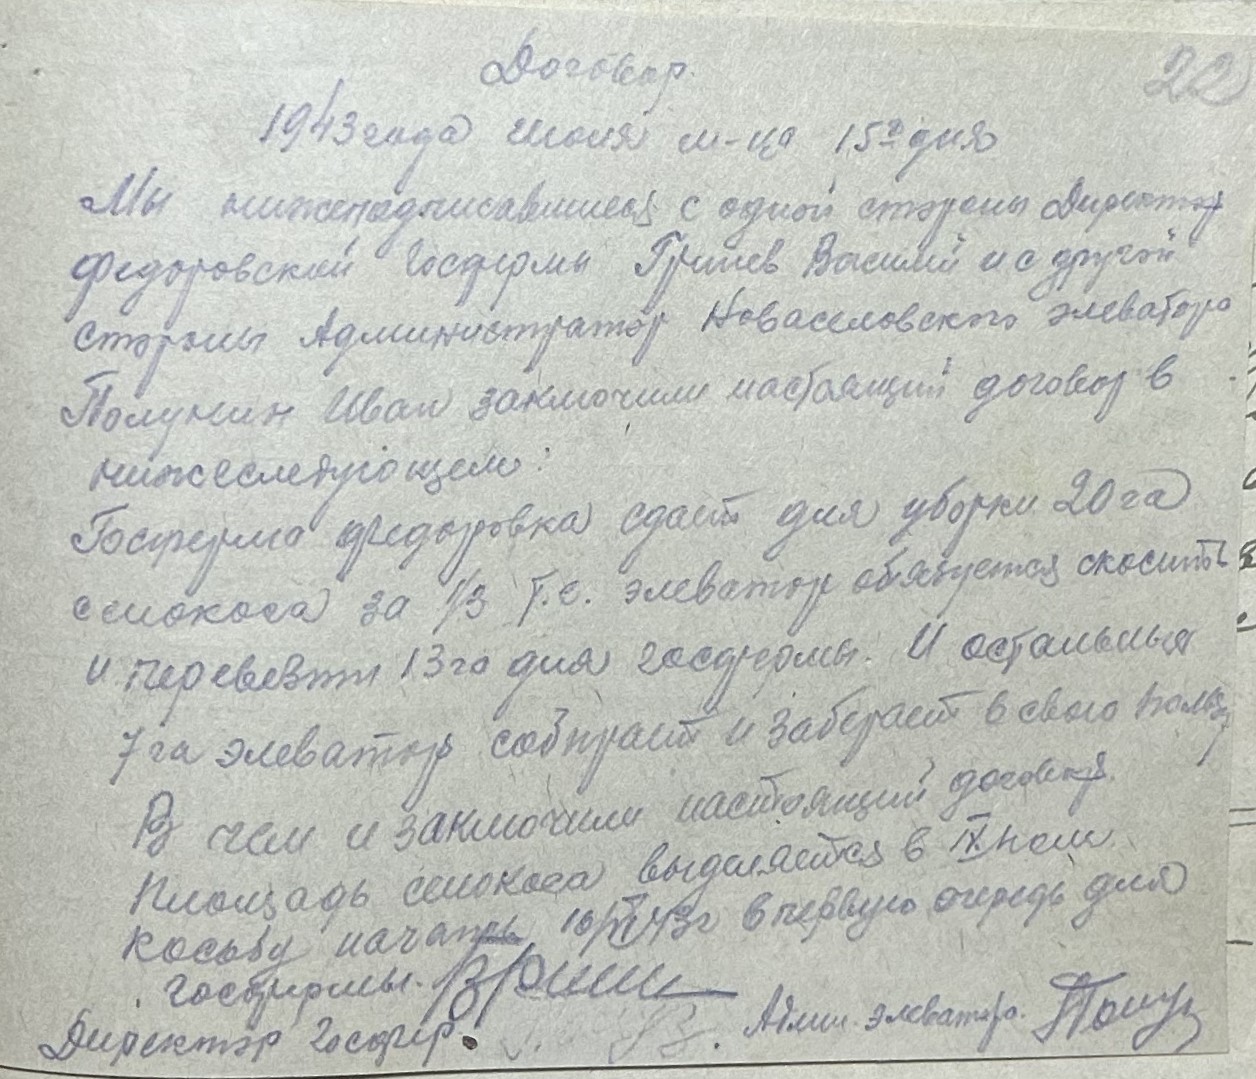 Договор.
22
1943 года Июля м-ца 15го дня
Мы ниженадписавшиеся с одной стороны Директор
Федоровской Госфермы Гришев Василий и с другой
стороны Администратор Новаселовского элеватора
Полунин Иван заключили настоящий договор в
нижеследующем:
Госферма Федоровка сдает для уборки 20 га
сенокоса за 1/3 т.е. элеватор обязуется скосить
и перевезти 13 га для госфермы. И остальныя
7 га элеватор собирает и заберает в свою пользу
В чем и заключили настоящий договор.
Площадь сенокоса выделяется в IX поли
косьбу начать в первую очередь для
госфермы.
Директор Госфер. Админ. элеватора.